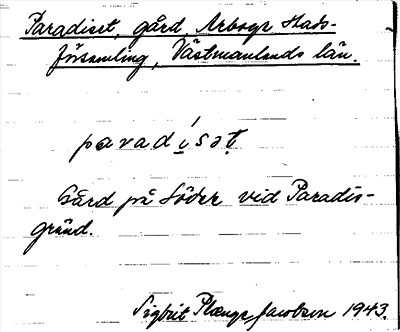 Paradiset, gård, Arboga Stads-
församling, Västmanlands län.
paradísət
Gård på Söder vid Paradis-
gränd.
Sigbrit Plænge Jacobson 1943.